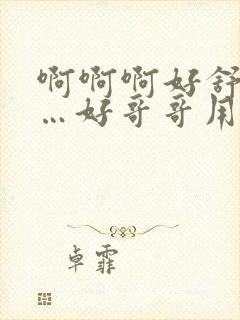 啊啊啊好舒
…好哥哥用
卓霏